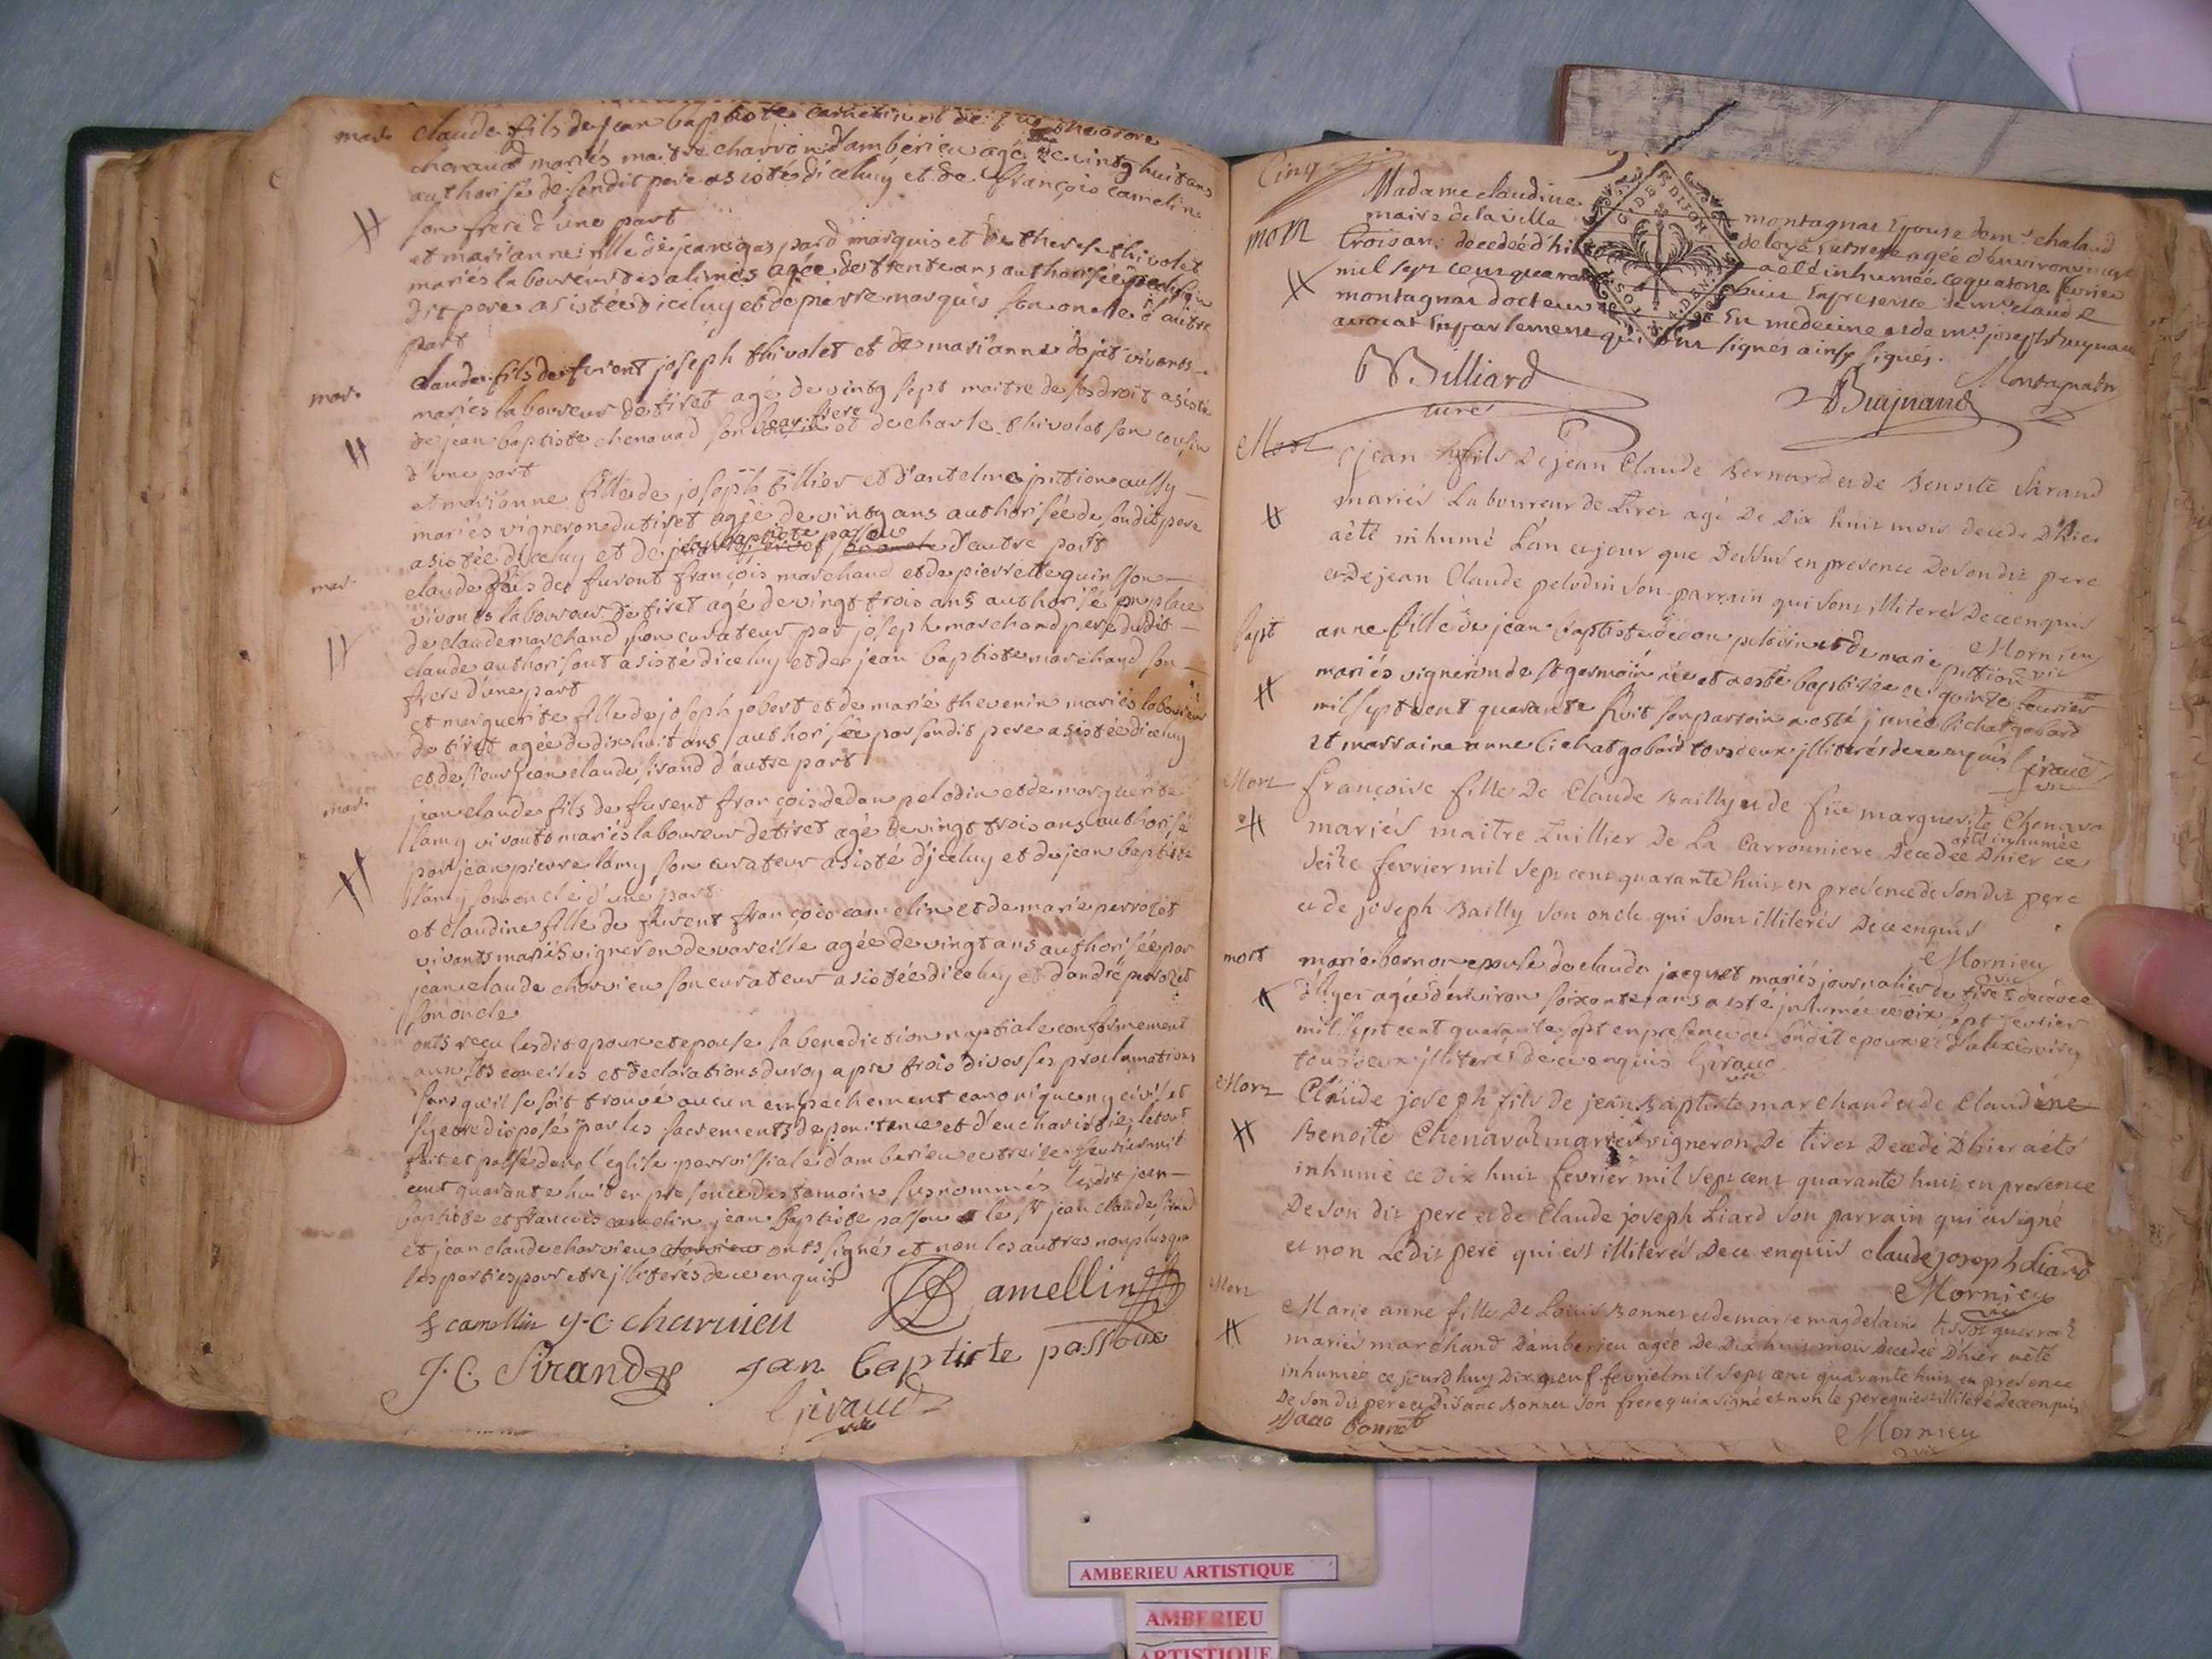 mar.
claude fils de jean baptiste camelin et de
chenavad mariés maitre charron d'ambérieu agé de vingt huit ans
authorisé de sondit pere asisté d'iceluy et de françois camelin
son frere d'une part
et marianne fille de jean gaspard marquis et de therese thivolet
mariés laboureur des alimes agée de trente ans authorisée
dit pere asistée d'iceluy et de pierre marquis son oncle d'autre
part
mar.
claude fils de furent joseph thivolet et de marianne dojat vivants
mariés laboureur de tiret agé de vingt sept maitre de ses droit asisté
de jean baptiste chenavad son beau frere et de charle thivolet son cousin
d'une part
et marianne fille de joseph tillier et d'antelme pittion aussy
mariés vigneron du tiret agée de vingt ans authorisée de sondit pere
asistée d'iceluy et de jean baptiste passou d'autre part
mar.
claude fils de furent françois marchand et de pierrette quinsson
vivants laboureur de tiret agé de vingt trois ans authorisé en place
de claude marchand son curateur par joseph marchand pere dudit
claude authorisant asisté d'iceluy et de jean baptiste marchand son
frere d'une part
et marguerite fille de joseph jobert et de marie thevenin mariés laboureur
de tiret agée de dix huit ans authorisée par sondit pere asistée d'iceluy
et de sieur jean claude sirand d'autre part
mar.
jean claude fils de furent françois dedan pelodin et de marguerite
lamy vivants mariés laboureur de tiret agé de vingt trois ans authorisé
par jean pierre lamy son curateur asisté d'iceluy et de jean baptiste
lamy son oncle d'une part
et claudine fille de furent françois camelin et de marie perrozet
vivants mariés vigneron de vareille agée de vingt ans authorisée par
jean claude charvieu son curateur asistée d'iceluy et d'andré perrozet
son oncle
onts reçu lesdits epoux et epouse la benediction naptiale conformement
aux sts conciles et declarations du roy apre trois diverses proclamations
sans qu'il se soit trouvé aucun empechement canonique ny civil et
s'y etre disposé par les sacrements de penitence et d'eucharistie, le tout
fait et passé dans l'eglise parroissiale d'amberieu ce treize feuvrier mil
cent quarante huit en presence des temoins susnommés lesdit jean
baptiste et francois camelin, jean baptiste passou et le sr jean claude sirand
et jean claude charvieu onts signés et non les autres non plus que
les parties pour etre jlliterés de ce enquis
Camellin
f camellin j.c charuieu
J.C. Sirand jan baptiste passoux
Giraud
vic
Cinq
mort
Madame claudine montagnat Epouse de mr. chaland
maire de la ville de loye
Croisant decedée d'hier a été inhumée ce quatorze fevrier
mil sept cent quarante huit En presence de mr. claude
montagnat docteur En medecine et de mr. joseph bugnaud
avocat En parlement qui ont signés ainsy signés.
Montagnat
B Billiard
curé
Bugnaud
Mort
jean fils De jean Claude Bernard et de Benoite Sirand
mariés Laboureur de Tiret agé De Dix huit mois decedé D'hier
a été inhumé L'an et jour que Dessus en presence De son dit pere
et De jean Claude pelodin son parrain qui sont illiterés De ce enquis
Mornieu
vic
bapt
anne fille de jean baptiste dedan pelodin et de marie pittion
mariés vigneron de st germain née et a esté baptizée ce quinze feuvrier
mil sept cent quarante huit son parrain a esté jean bichat gobard
et marraine anne bichat gobard tous deux jlliterés de ce enquis Giraud
vic
Mort
françoise fille De Claude Bailly et de füe marguerite Chenava
mariés maitre Tuillier De La Carronniere Decedée D'hier a été inhumée ce
seize fevrier mil sept cent quarante huit en presence de son dit pere
et de joseph Bailly son oncle qui sont illiterés De ce enquis
Mornieu
vic
mort
marie bernon epouse de claude jacquet mariés journalier de tiret decedée
d'hyer agée d'environ soixante ans a esté inhumée ce dix sept feuvrier
mil sept cent quarante sept en presence de sondit epoux et
tous deux jlliterés de ce enquis Giraud
vic
Mort
Claude joseph fils de jean Baptiste marchand et de Claudine
Benoite Chenavaz mariés vigneron De tiret Decedé D'hier a été
inhumé ce Dix huit fevrier mil sept cent quarante huit en presence
De son dit pere et de Claude joseph Liard son parrain qui a signé
et non Ledit pere qui est illiterés De ce enquis claude joseph Liard
Mornieu
vic
Mort
Marie anne fille De Louis Bonnet et de marie magdelaine tissot guerraz
mariés marchand D'amberieu agée De Dix huit mois Decedée D'hier a été
inhumée ce jourd'huy Dix neuf fevrier mil sept cent quarante huit en presence
De son dit pere et D'isaac Bonnet son frere qui a signé et non le pere qui est illiteré De ce enquis
isaac bonnet
Mornieu
vic
AMBERIEU ARTISTIQUE
AMBERIEU
ARTISTIQUE